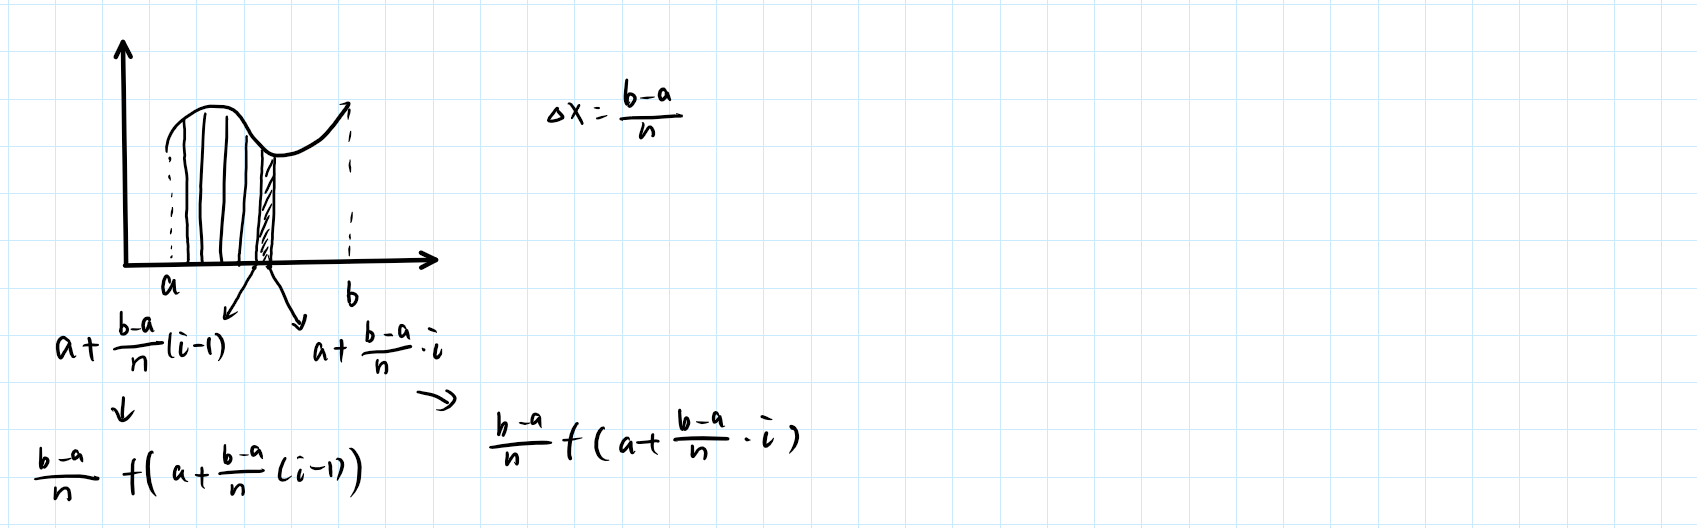 Δx = (b-a)/n
a
b
a + (b-a)/n (i-1)
a + (b-a)/n · i
(b-a)/n f(a + (b-a)/n · i)
(b-a)/n f(a + (b-a)/n (i-1))